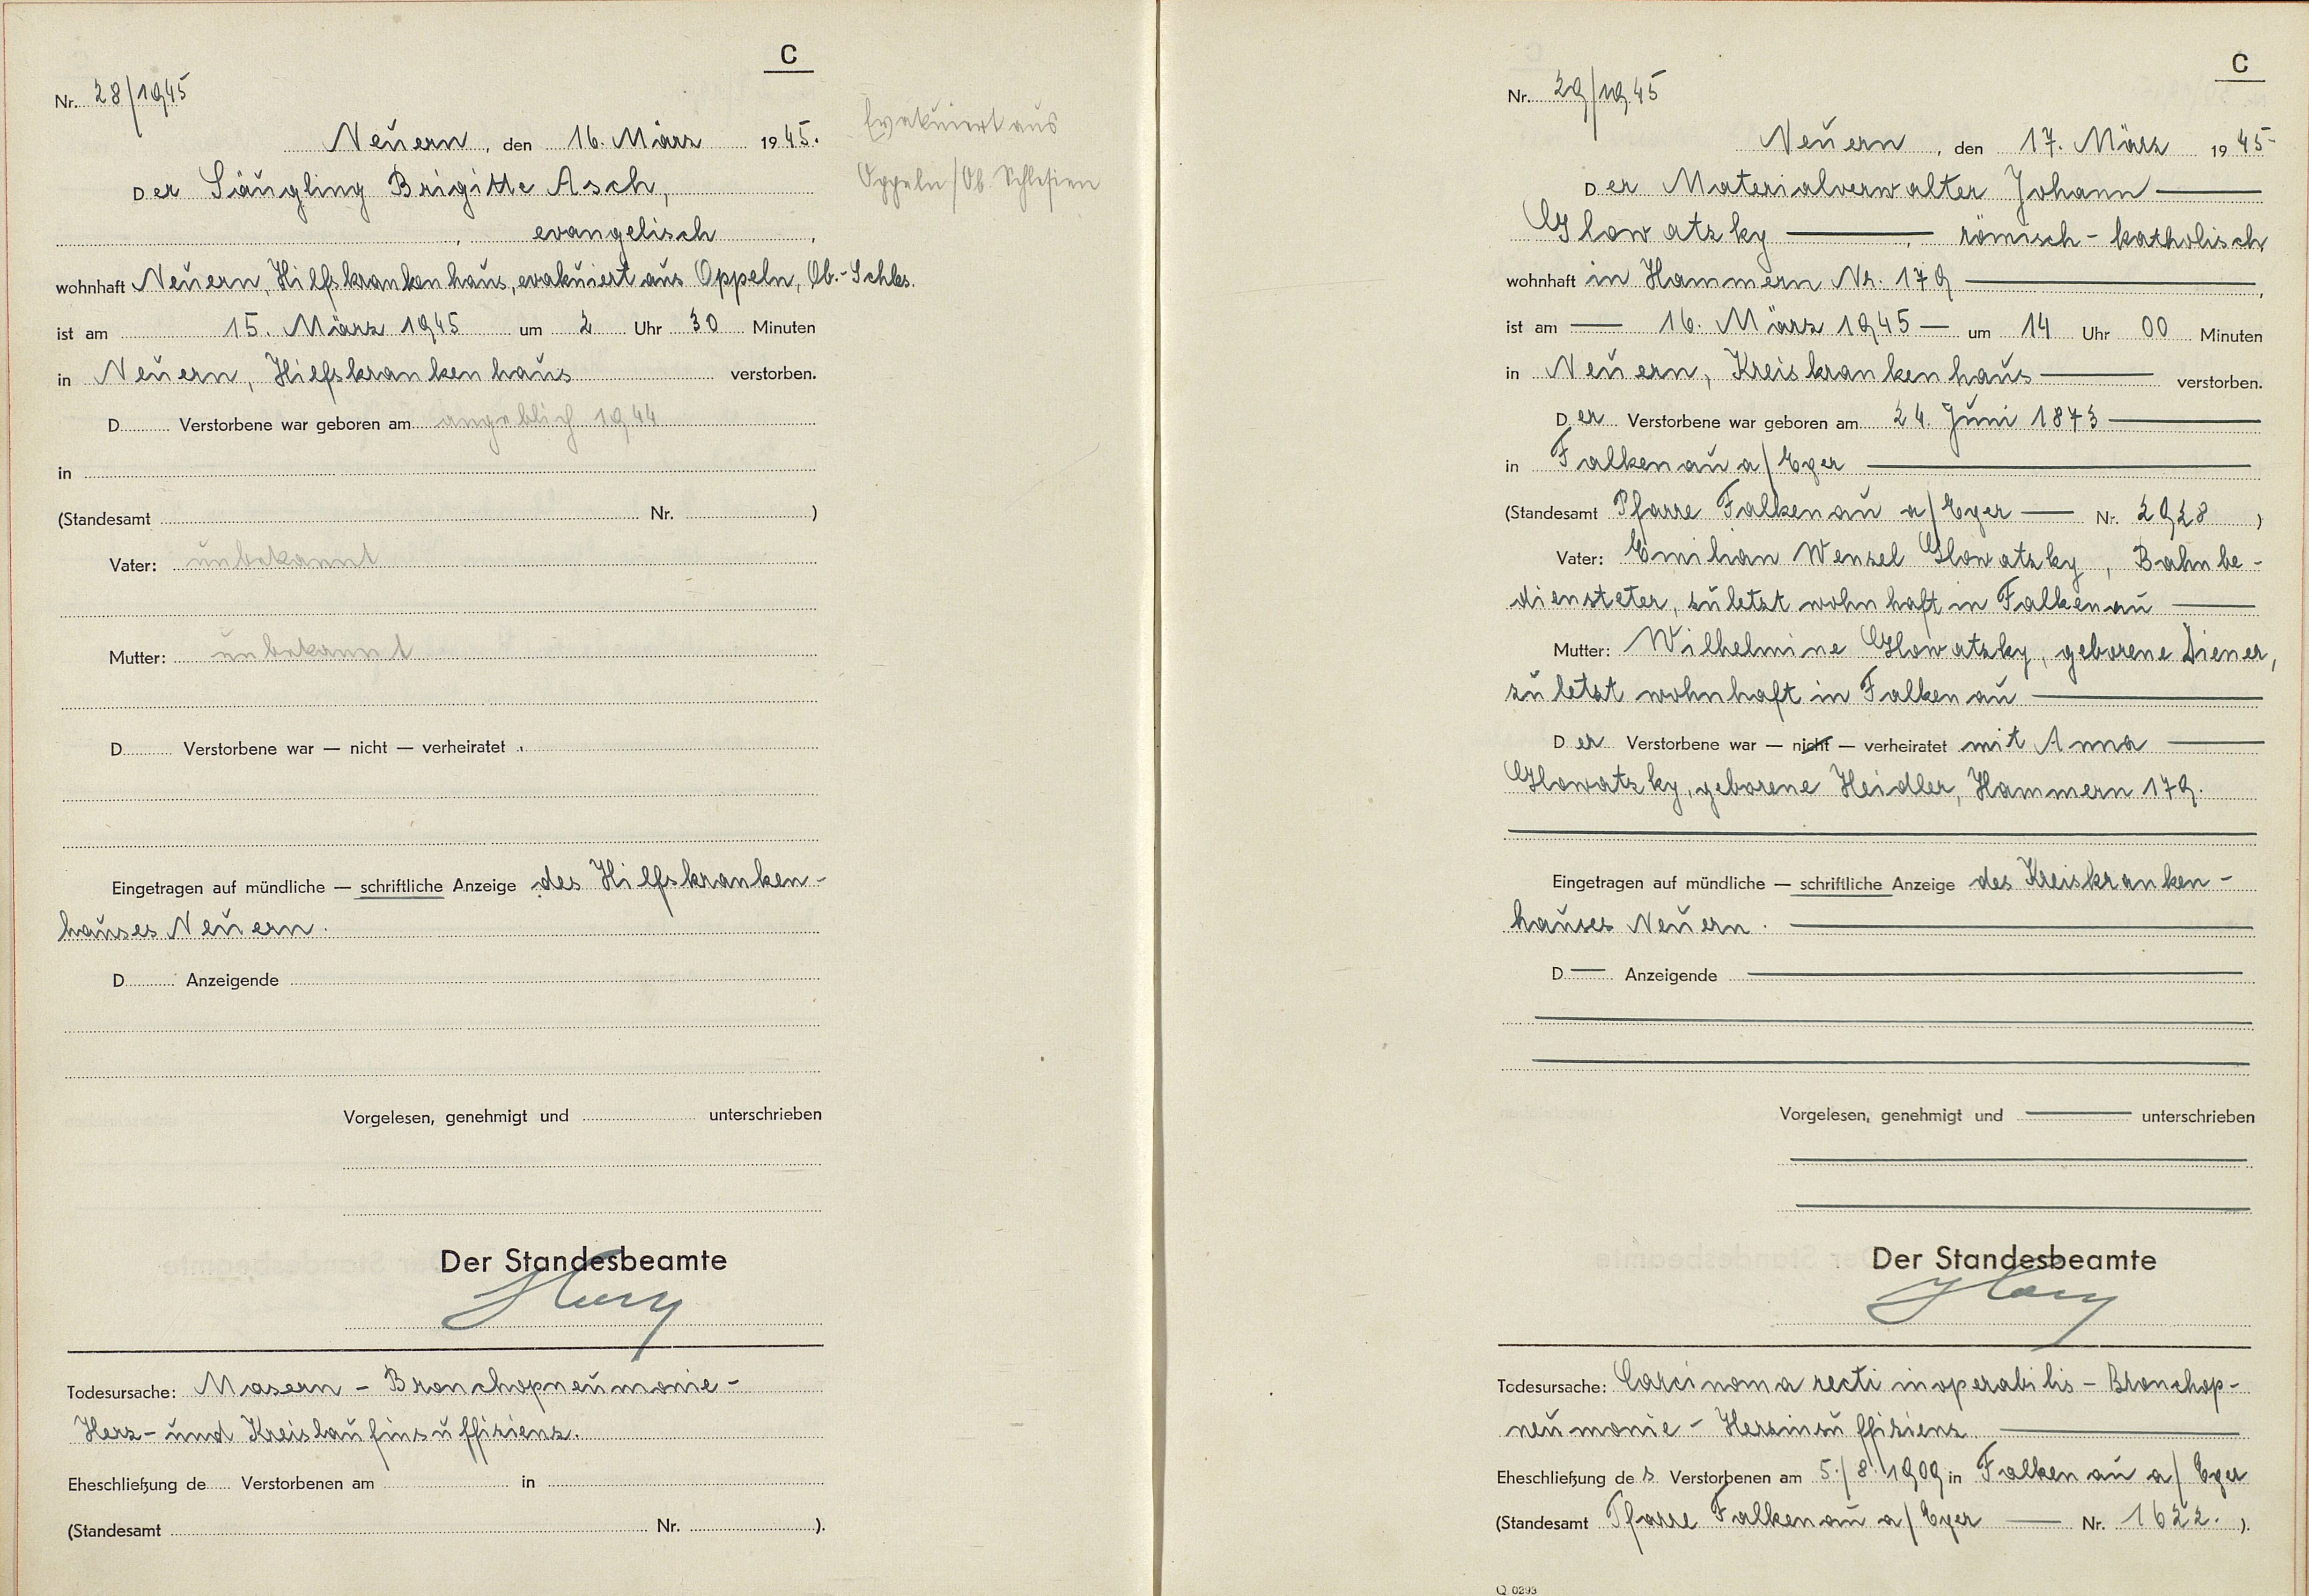 C
Nr. 28/1945
Neuern, den 16. März 1945.
Evakuiert aus
Oppeln/Ob. Schlesien
Der Säugling Brigitte Asch,
, evangelisch,
wohnhaft Neuern, Hilfskrankenhaus, evakuiert aus Oppeln, Ob.-Schles.
ist am 15. März 1945 um 2 Uhr 30 Minuten
in Neuern, Hilfskrankenhaus verstorben.
D Verstorbene war geboren am angeblich 1944
in
(Standesamt Nr. )
Vater: unbekannt
Mutter: unbekannt
D Verstorbene war — nicht — verheiratet
Eingetragen auf mündliche — schriftliche Anzeige des Hilfskranken-
hauses Neuern.
D Anzeigende
Vorgelesen, genehmigt und unterschrieben
Der Standesbeamte
Todesursache: Masern - Bronchopneumonie -
Herz- und Kreislaufinsuffizienz.
Eheschließung de Verstorbenen am in
(Standesamt Nr. ).
C
Nr. 29/1945
Neuern, den 17. März 1945
Der Materialverwalter Johann
Glowatzky, römisch-katholisch
wohnhaft in Hammern Nr. 179,
ist am 16. März 1945 um 14 Uhr 00 Minuten
in Neuern, Kreiskrankenhaus verstorben.
Der Verstorbene war geboren am 24. Juni 1873
in Falkenau a/Eger
(Standesamt Pfarre Falkenau a/Eger Nr. 2928 )
Vater: Emilian Wenzel Glowatzky, Bahnbe-
diensteter, zuletzt wohnhaft in Falkenau
Mutter: Wilhelmine Glowatzky, geborene Diener,
zuletzt wohnhaft in Falkenau
Der Verstorbene war — nicht — verheiratet mit Anna
Glowatzky, geborene Heidler, Hammern 179.
Eingetragen auf mündliche — schriftliche Anzeige des Kreiskranken-
hauses Neuern.
D Anzeigende
Vorgelesen, genehmigt und unterschrieben
Der Standesbeamte
Todesursache: Carcinoma recti inoperabilis - Bronchop-
neumonie - Herzinsuffizienz
Eheschließung des Verstorbenen am 5./8. 1909 in Falkenau a/Eger
(Standesamt Pfarre Falkenau a/Eger Nr. 1622. ).
Q 0293